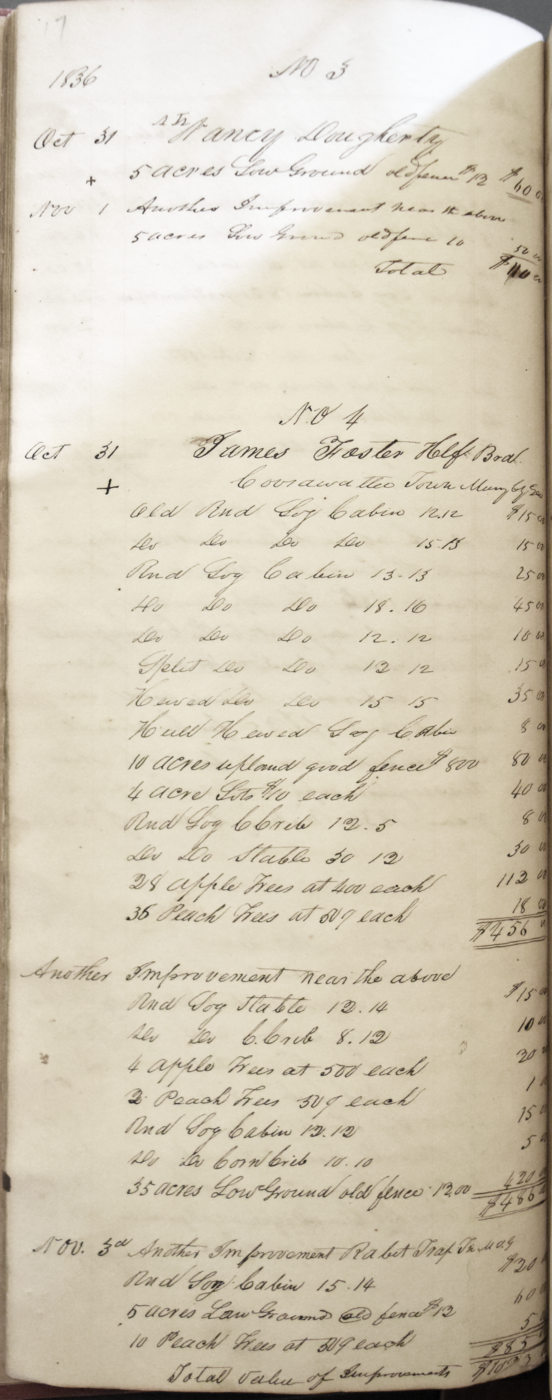 17
1836 NO 3
Oct 31 Nancy Dougherty
+ 5 acres Low Ground old fence $12 $60 00
Nov 1 Another Improvement near the above
5 acres Low Ground old fence 10 50 00
Total $110 00
NO 4
Oct 31 James Foster Hlf Brd.
+ Coosawattee Town Murry Cty
Old Rnd Log Cabin 12.12 $15 00
Do Do Do Do 15.15 15 00
Rnd Log Cabin 13-13 25 00
Do Do Do 18.16 45 00
Do Do Do 12.12 10 00
Split Do Do 12 12 15 00
Hewed Do Do 15 15 35 00
Hull Hewed Log Cabin 8 00
10 acres upland good fence $800 80 00
4 acre Lots $10 each 40 00
Rnd Log C Crib 12.5 8 00
Do Do Stable 30 12 30 00
28 apple Trees at 400 each 112 00
36 Peach Trees at 50¢ each 18 00
$456 00
Another Improvement near the above
Rnd Log Stable 12.14 $15 00
Do Do C. Crib 8.12 10 00
4 apple Trees at 500 each 20 00
2 Peach Trees 50¢ each 1 00
Rnd Log Cabin 12.12 15 00
Do Do Corn Crib 10.10 5 00
35 acres Low Ground old fence 1200 420 00
$486 00
Nov. 3d Another Improvement Rabit Trap Tn
Rnd Log Cabin 15.14 $20
5 acres Law Ground old fence $12 60 0
10 Peach Trees at 50¢ each 5 0
$85
Total value of Improvements